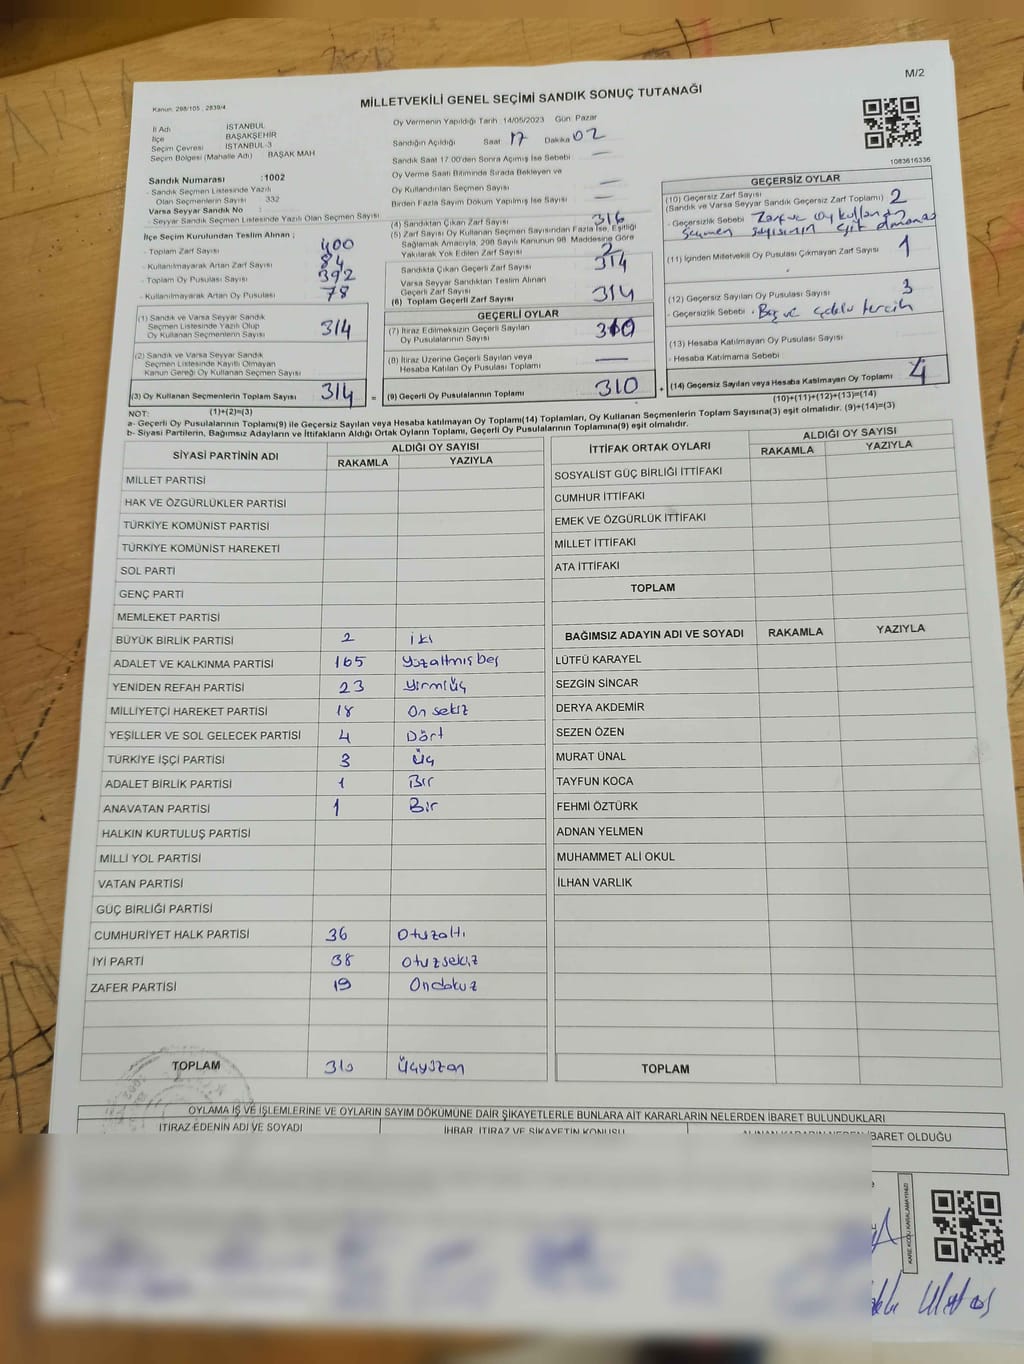 M/2
Kanun: 298/105 , 2839/4
MİLLETVEKİLİ GENEL SEÇİMİ SANDIK SONUÇ TUTANAĞI
İl Adı İSTANBUL
İlçe BAŞAKŞEHİR
Seçim Çevresi İSTANBUL-3
Seçim Bölgesi (Mahalle Adı) BAŞAK MAH
Sandık Numarası :1002
- Sandık Seçmen Listesinde Yazılı
Olan Seçmenlerin Sayısı 332
Varsa Seyyar Sandık No :
- Seyyar Sandık Seçmen Listesinde Yazılı Olan Seçmen Sayısı
İlçe Seçim Kurulundan Teslim Alınan ;
- Toplam Zarf Sayısı 400
- Kullanılmayarak Artan Zarf Sayısı 84
- Toplam Oy Pusulası Sayısı 392
- Kullanılmayarak Artan Oy Pusulası 78
(1) Sandık ve Varsa Seyyar Sandık
Seçmen Listesinde Yazılı Olup
Oy Kullanan Seçmenlerin Sayısı 314
(2) Sandık ve Varsa Seyyar Sandık
Seçmen Listesinde Kayıtlı Olmayan
Kanun Gereği Oy Kullanan Seçmen Sayısı
(3) Oy Kullanan Seçmenlerin Toplam Sayısı 314 =
Oy Vermenin Yapıldığı Tarih :14/05/2023 Gün: Pazar
Sandığın Açıldığı Saat 17 Dakika 02
Sandık Saat 17:00'den Sonra Açımış İse Sebebi —
Oy Verme Saati Bitiminde Sırada Bekleyen ve
Oy Kullandırılan Seçmen Sayısı —
Birden Fazla Sayım Döküm Yapılmış İse Sayısı —
(4) Sandıktan Çıkan Zarf Sayısı 316
(5) Zarf Sayısı Oy Kullanan Seçmen Sayısından Fazla İse, Eşitliği
Sağlamak Amacıyla, 298 Sayılı Kanunun 98. Maddesine Göre
Yakılarak Yok Edilen Zarf Sayısı 2
Sandıkta Çıkan Geçerli Zarf Sayısı 314
Varsa Seyyar Sandıktan Teslim Alınan
Geçerli Zarf Sayısı
(6) Toplam Geçerli Zarf Sayısı 314
GEÇERLİ OYLAR
(7) İtiraz Edilmeksizin Geçerli Sayılan
Oy Pusulalarının Sayısı 310
(8) İtiraz Üzerine Geçerli Sayılan veya
Hesaba Katılan Oy Pusulası Toplamı —
(9) Geçerli Oy Pusulalarının Toplamı 310 +
1083616336
GEÇERSİZ OYLAR
(10) Geçersiz Zarf Sayısı
(Sandık ve Varsa Seyyar Sandık Geçersiz Zarf Toplamı) 2
- Geçersizlik Sebebi Zarf ve Oy kullanan
seçmen sayısının eşit olmaması
(11) İçinden Milletvekili Oy Pusulası Çıkmayan Zarf Sayısı 1
(12) Geçersiz Sayılan Oy Pusulası Sayısı 3
- Geçersizlik Sebebi . Boş ve çoklu tercih
(13) Hesaba Katılmayan Oy Pusulası Sayısı
- Hesaba Katılmama Sebebi
(14) Geçersiz Sayılan veya Hesaba Katılmayan Oy Toplamı 4
(10)+(11)+(12)+(13)=(14)
NOT: (1)+(2)=(3)
a- Geçerli Oy Pusulalarının Toplamı(9) ile Geçersiz Sayılan veya Hesaba katılmayan Oy Toplamı(14) Toplamları, Oy Kullanan Seçmenlerin Toplam Sayısına(3) eşit olmalıdır. (9)+(14)=(3)
b- Siyasi Partilerin, Bağımsız Adayların ve İttifakların Aldığı Ortak Oyların Toplamı, Geçerli Oy Pusulalarının Toplamına(9) eşit olmalıdır.
SİYASİ PARTİNİN ADI ALDIĞI OY SAYISI
RAKAMLA YAZIYLA
MİLLET PARTİSİ
HAK VE ÖZGÜRLÜKLER PARTİSİ
TÜRKİYE KOMÜNİST PARTİSİ
TÜRKİYE KOMÜNİST HAREKETİ
SOL PARTİ
GENÇ PARTİ
MEMLEKET PARTİSİ
BÜYÜK BİRLİK PARTİSİ 2 iki
ADALET VE KALKINMA PARTİSİ 165 Yüzaltmışbeş
YENİDEN REFAH PARTİSİ 23 Yirmiüç
MİLLİYETÇİ HAREKET PARTİSİ 18 On sekiz
YEŞİLLER VE SOL GELECEK PARTİSİ 4 Dört
TÜRKİYE İŞÇİ PARTİSİ 3 Üç
ADALET BİRLİK PARTİSİ 1 Bir
ANAVATAN PARTİSİ 1 Bir
HALKIN KURTULUŞ PARTİSİ
MİLLİ YOL PARTİSİ
VATAN PARTİSİ
GÜÇ BİRLİĞİ PARTİSİ
CUMHURİYET HALK PARTİSİ 36 Otuzaltı
İYİ PARTİ 38 Otuzsekiz
ZAFER PARTİSİ 19 Ondokuz
TOPLAM 310 Üçyüzon
İTTİFAK ORTAK OYLARI ALDIĞI OY SAYISI
RAKAMLA YAZIYLA
SOSYALİST GÜÇ BİRLİĞİ İTTİFAKI
CUMHUR İTTİFAKI
EMEK VE ÖZGÜRLÜK İTTİFAKI
MİLLET İTTİFAKI
ATA İTTİFAKI
TOPLAM
BAĞIMSIZ ADAYIN ADI VE SOYADI RAKAMLA YAZIYLA
LÜTFÜ KARAYEL
SEZGİN SİNCAR
DERYA AKDEMİR
SEZEN ÖZEN
MURAT ÜNAL
TAYFUN KOCA
FEHMİ ÖZTÜRK
ADNAN YELMEN
MUHAMMET ALİ OKUL
İLHAN VARLIK
TOPLAM
OYLAMA İŞ VE İŞLEMLERİNE VE OYLARIN SAYIM DÖKÜMÜNE DAİR ŞİKAYETLERLE BUNLARA AİT KARARLARIN NELERDEN İBARET BULUNDUKLARI
İTİRAZ EDENİN ADI VE SOYADI İHBAR, İTİRAZ VE ŞİKAYETİN KONUSU ALINAN KARARIN NEDEN İBARET OLDUĞU
KARE KODU KARALAMAYINIZ!